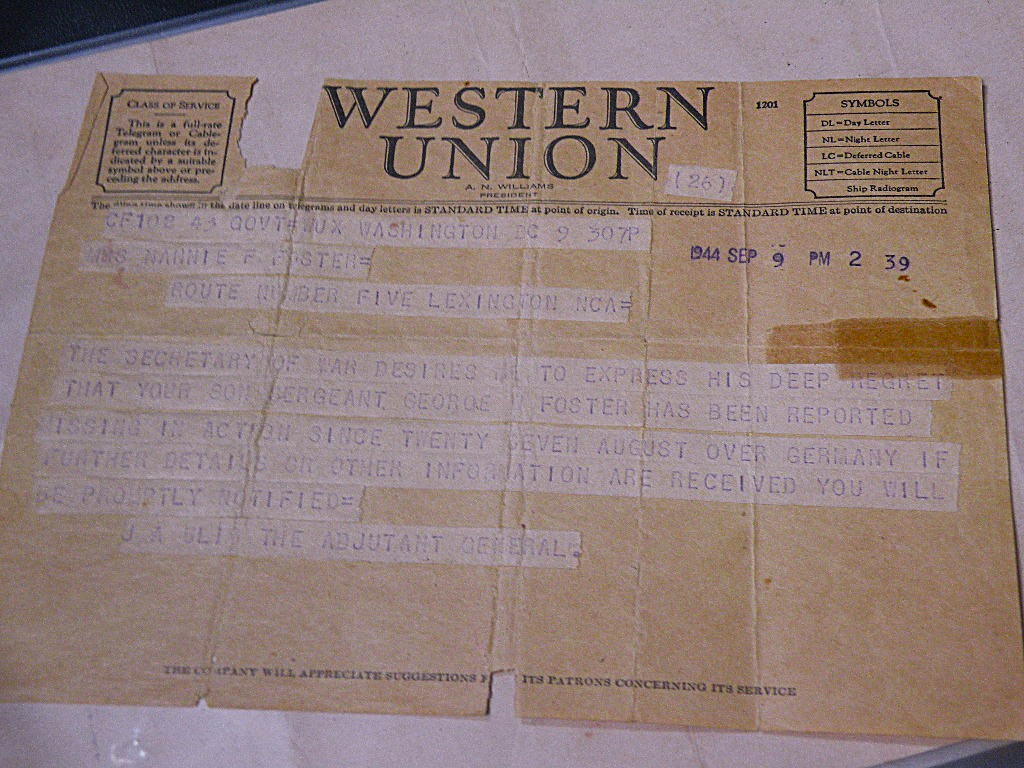 CLASS OF SERVICE
This is a full-rate
Telegram or Cable-
gram unless its de-
ferred character is in-
dicated by a suitable
symbol above or pre-
ceding the address.
WESTERN
UNION
A. N. WILLIAMS
PRESIDENT
1201
(26)
SYMBOLS
DL=Day Letter
NL=Night Letter
LC=Deferred Cable
NLT=Cable Night Letter
Ship Radiogram
The time shown in the date line on telegrams and day letters is STANDARD TIME at point of origin. Time of receipt is STANDARD TIME at point of destination
CF102 43 GOVT=WUX WASHINGTON DC 9 307P
1944 SEP 9 PM 2 39
MRS NANNIE F FOSTER=
ROUTE NUMBER FIVE LEXINGTON NCA=
THE SECRETARY OF WAR DESIRES ME TO EXPRESS HIS DEEP REGRET
THAT YOUR SON SERGEANT GEORGE FOSTER HAS BEEN REPORTED
MISSING IN ACTION SINCE TWENTY SEVEN AUGUST OVER GERMANY IF
FURTHER DETAILS OR OTHER INFORMATION ARE RECEIVED YOU WILL
BE PROMPTLY NOTIFIED=
J A ULIO THE ADJUTANT GENERAL.
THE COMPANY WILL APPRECIATE SUGGESTIONS ITS PATRONS CONCERNING ITS SERVICE